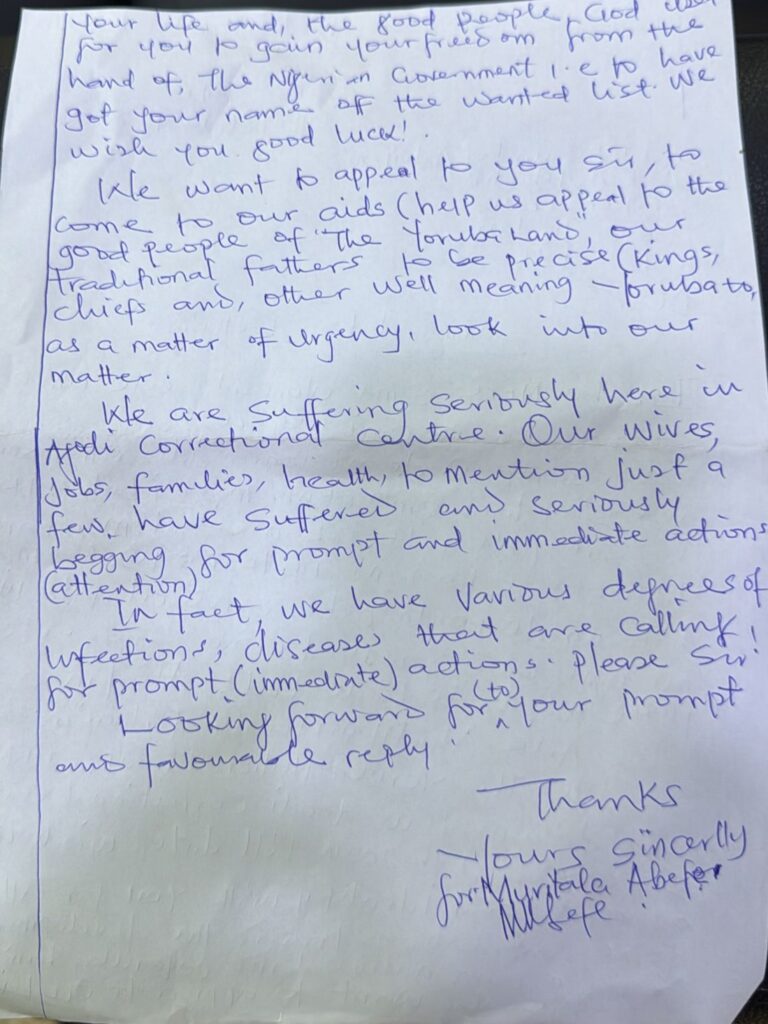 your life and, the good people, God used
for you to gain your freedom from the
hand of, the Nigerian Government i.e to have
got your name off the wanted list. We
wish you good luck!.
We want to appeal to you Sir, to
come to our aids (help us appeal to the
good people of "The Yoruba Land", our
traditional fathers to be precise (Kings,
chiefs and, other well meaning Yoruba to,
as a matter of urgency, look into our
matter.
We are suffering seriously here in
Agodi Correctional Centre. Our wives,
jobs, families, health, to mention just a
few, have suffered and seriously
begging for prompt and immediate actions
(attention)
In fact, we have various degrees of
infections, diseases that are calling
for prompt (immediate) actions. Please Sir!
Looking forward for (to) your prompt
and favourable reply.
Thanks
Yours Sincerlly
for Muritala Abefe